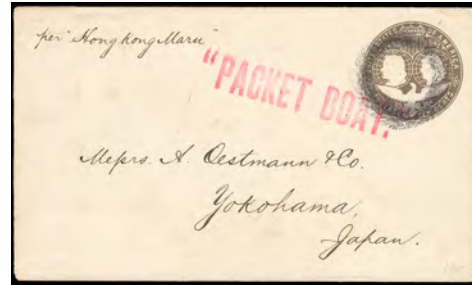 per "Hong kong Maru"
"PACKET BOAT."
OF AMERICA
Messrs. A. Oestmann & Co.
Yokohama,
Japan.